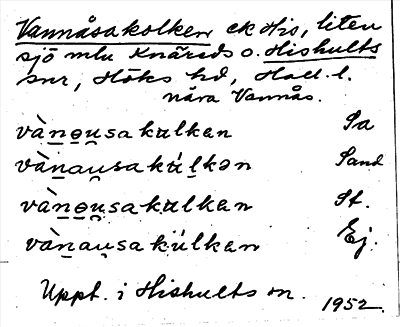 Vannåsakolken ek His, liten
sjö mlu Knäreds o. Hishults
snr, Höks hd, Hall. l.
nära Vannås.
và̀n̲ɵu̯sakulkən Sa
vànau̯sakúl̲kən Sand
vàn̲ɵu̯sakulkən St.
vàn̲au̯sakúlkən Ej.
Uppt. i Hishults sn. 1952.